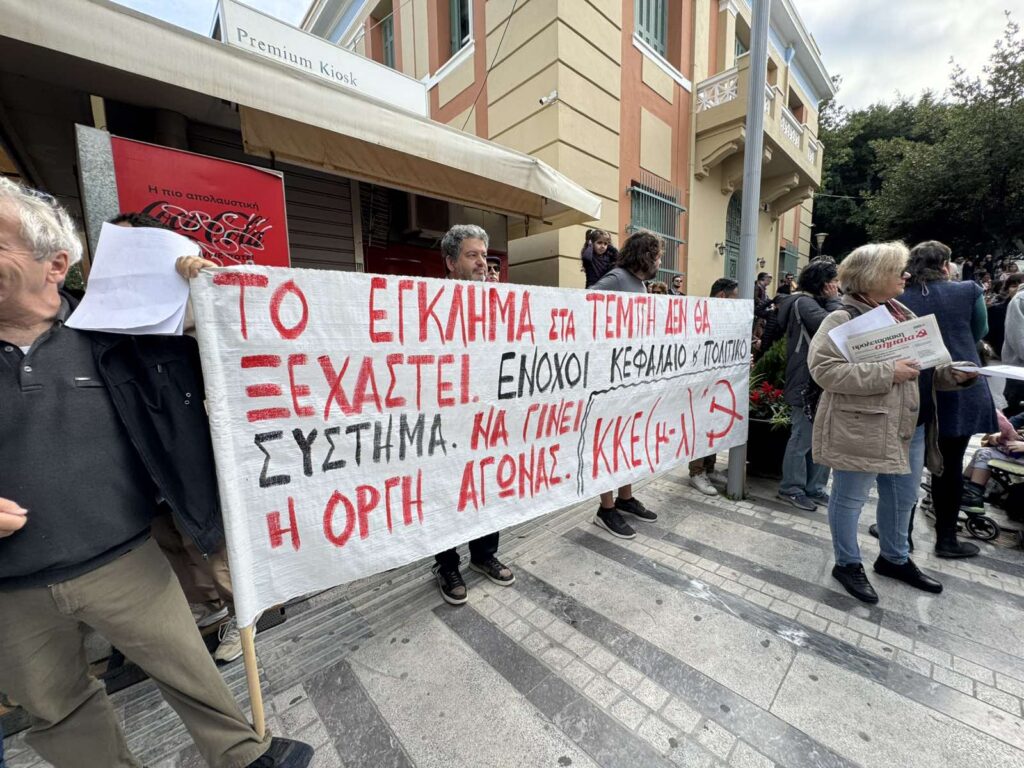 Premium Kiosk
Η πιο απολαυστική
ΤΟ ΕΓΚΛΗΜΑ ΣΤΑ ΤΕΜΠΗ ΔΕΝ ΘΑ
ΞΕΧΑΣΤΕΙ. ΕΝΟΧΟΙ ΚΕΦΑΛΑΙΟ κ' ΠΟΛΙΤΙΚΟ
ΣΥΣΤΗΜΑ. ΝΑ ΓΙΝΕΙ
Η ΟΡΓΗ ΑΓΩΝΑΣ.
ΚΚΕ(μ-λ)
προλεταριακή
σημαία